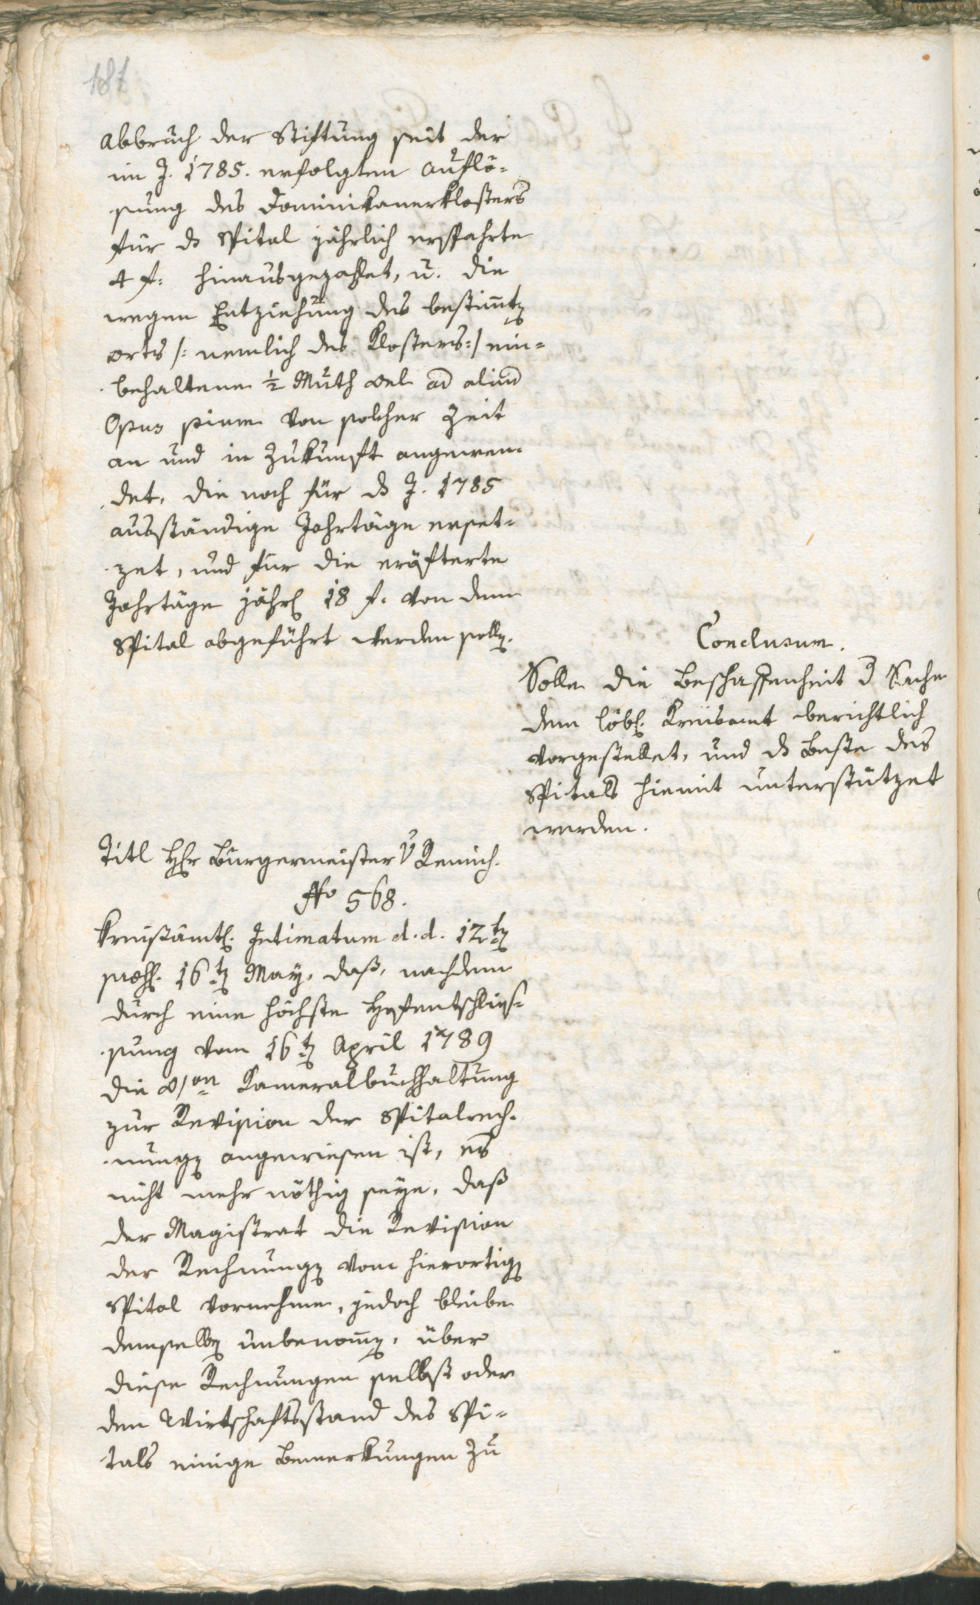 181
Abbruch der Stiftung seit der
im J. 1785. erfolgten Auflö-
sung des Dominikanerklosters
für ds Spital jährlich ersparte
4 f: hinausgezahlet, u. die
wegen Entziehung des bestimten
Orts /: nemlich des Klosters:/ ein-
behaltene ½ Muth Oel ad aliud
Opus pium von solcher Zeit
an und in Zukunft angewen-
det, die noch für ds J. 1785
ausständige Jahrtäge erset-
zet, und für die
Jahrtäge jährl 18 f. von dem
Spital abgeführt werden solle.
Conclusum.
Solle die Beschaffenheit d Sache
dem löbl. Kreisamt berichtlich
vorgestellet, und ds Beste des
Spitals hiemit unterstützet
werden.
Titl Hr Bürgermeister v Remich.
No 568.
Kreisämtl. Intimatum d. d. 12ten
praes. 16ten May, daß, nachdem
durch eine höchste Hofentschlies-
sung vom 16ten April 1789
die Kameralbuchhaltung
zur Revision der Spitalrech-
nungen angewiesen ist, es
nicht mehr nöthig seye, daß
der Magistrat die Revision
der Rechnungen vom hierortigen
Spital vornehme, jedoch bleibe
demselben unbenomen, über
diese Rechnungen selbst oder
den Wirtschaftsstand des Spi-
tals einige Bemerkungen zu